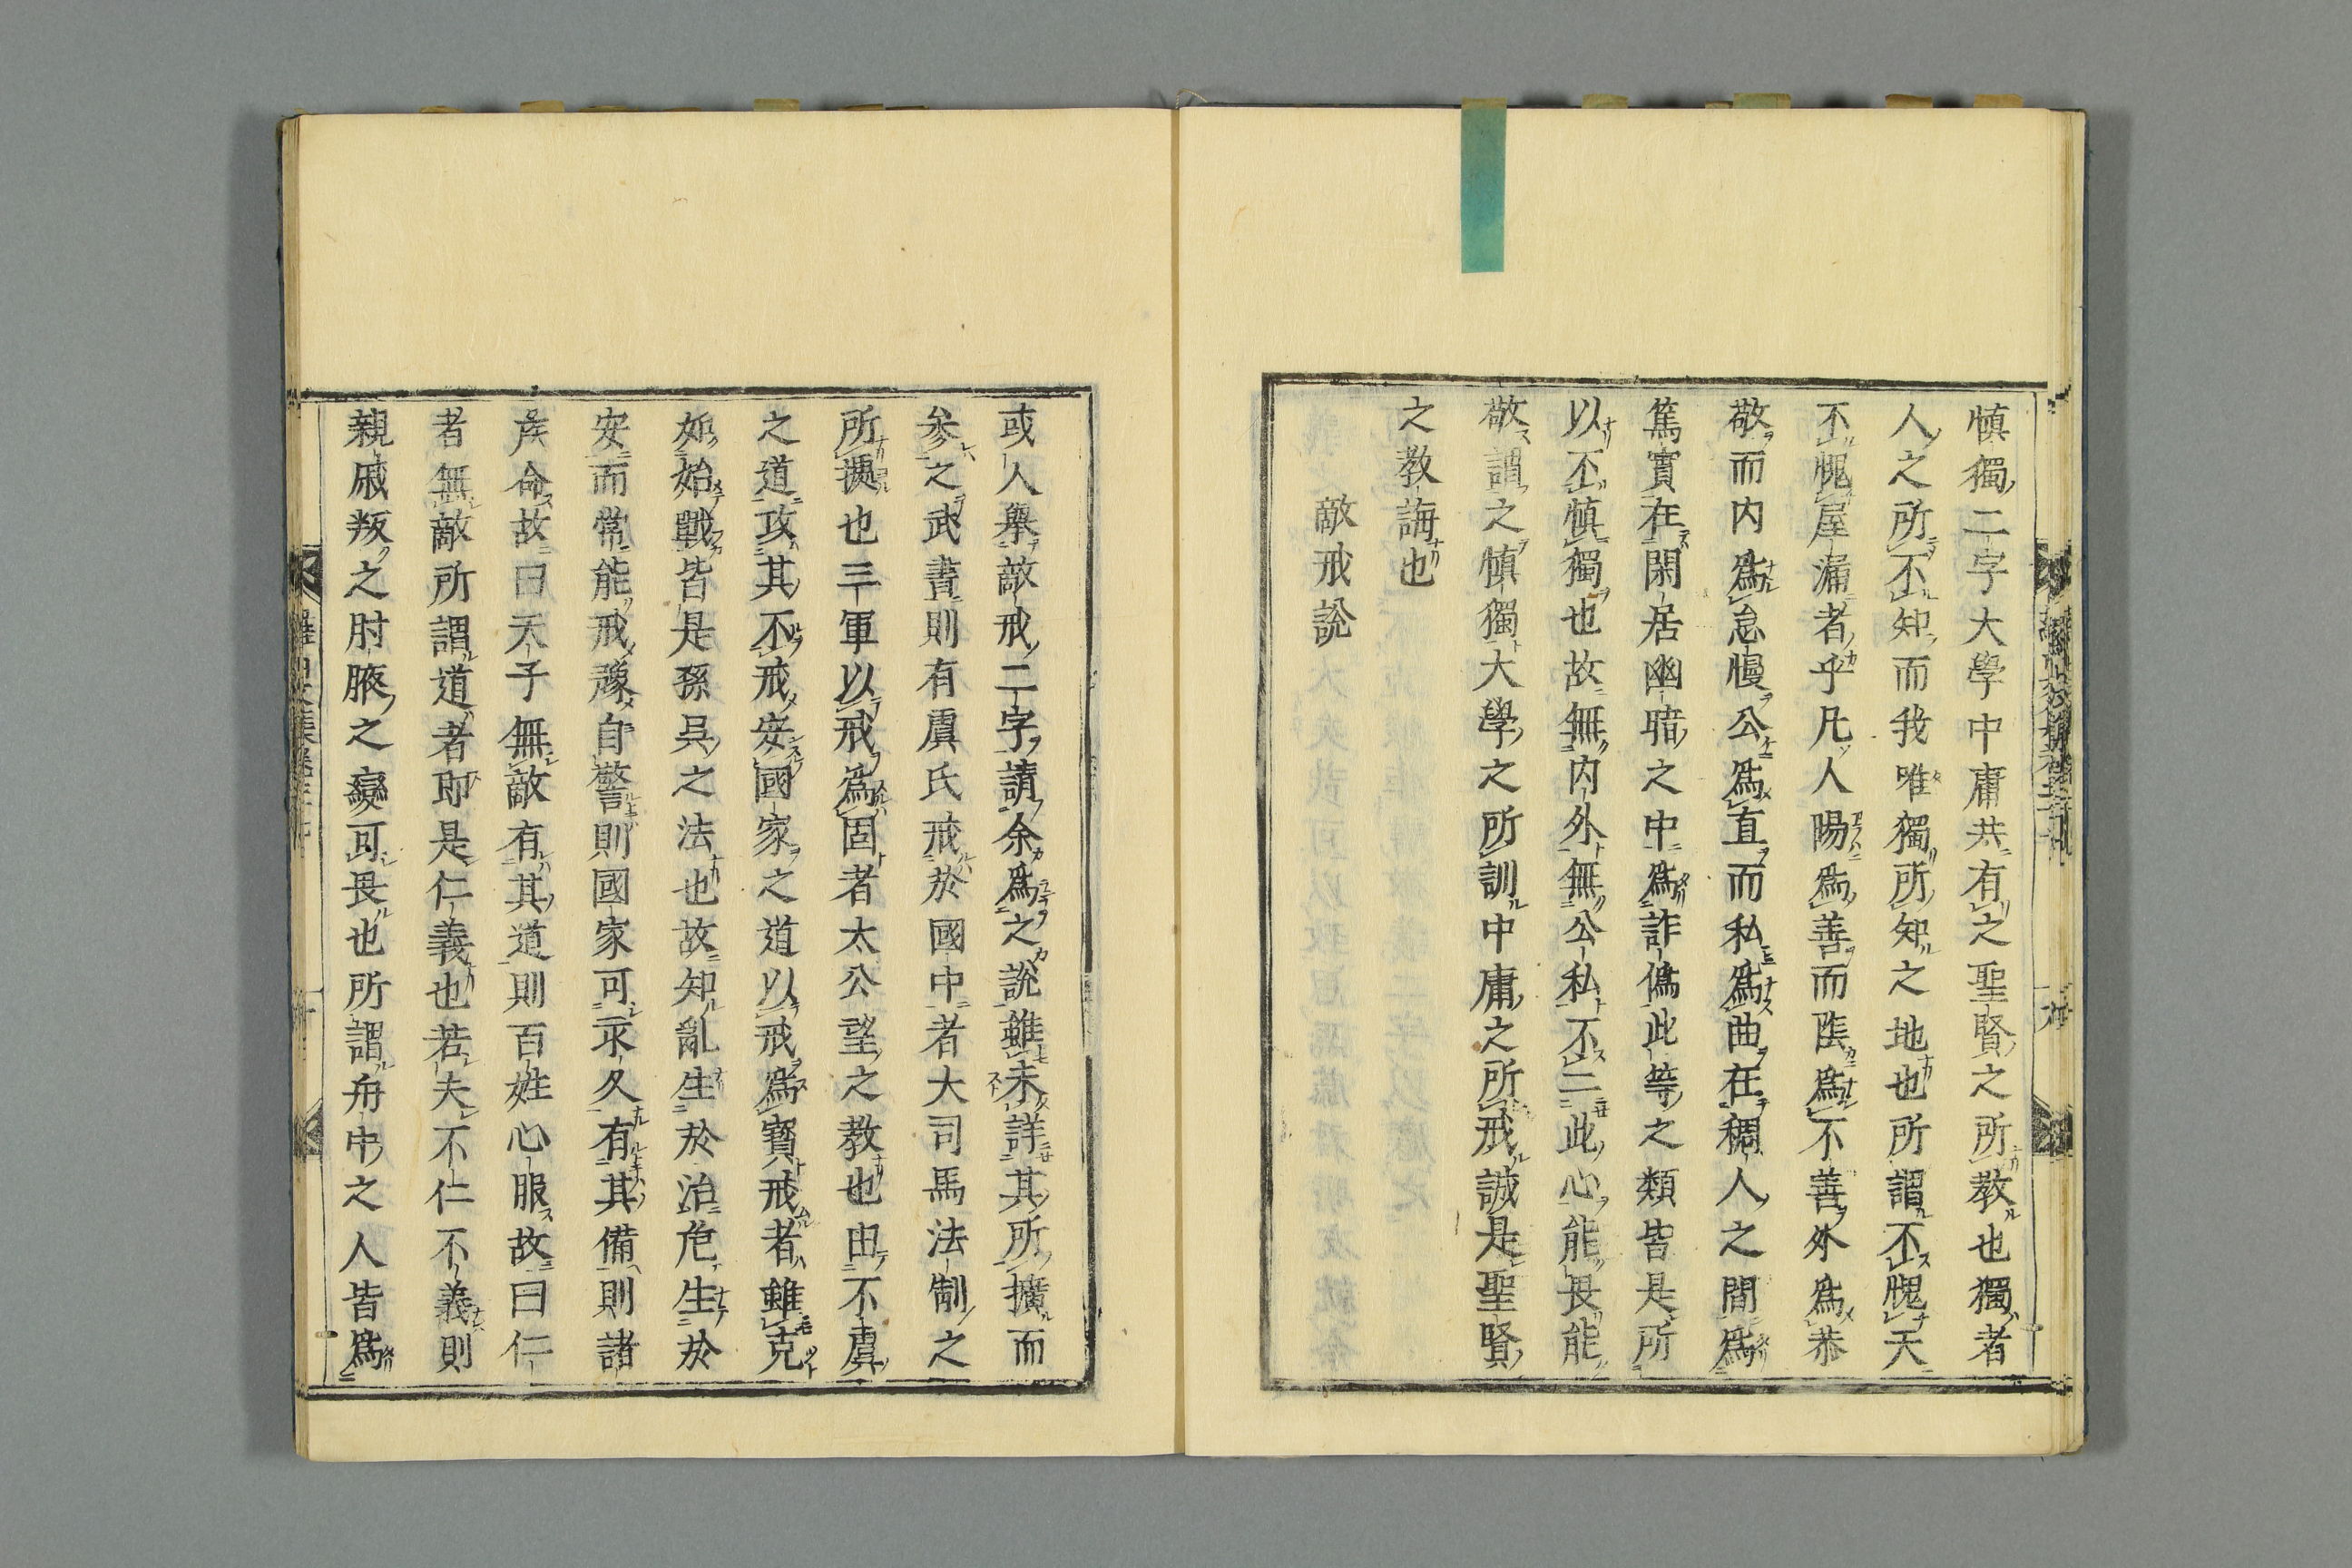 慎獨二字大學中庸共有之聖賢之所教也獨者
人之所不知而我唯獨所知之地也所謂不愧天
不愧屋漏者乎凡人陽爲善而陰爲不善外爲恭
敬而内爲怠慢公爲直而私爲曲在稠人之間爲
篤實在閑居幽暗之中爲詐僞此等之類皆是所
以不慎獨也故無内外無公私不二此心能畏能
敬謂之慎獨大學之所訓中庸之所戒誠是聖賢
之教誨也
敵戒説
或人舉敵戒二字請余爲之説雖未詳其所擴而
参之武書則有虞氏戒於國中者大司馬法制之
所據也三軍以戒爲固者太公望之教也由不虞
之道攻其不戒安國家之道以戒爲寳戒者雖克
如始戰皆是孫呉之法也故知亂生於治危生於
安而常能戒豫自警則國家可永久有其備則諸
矦命故曰天子無敵有其道則百姓心服故曰仁
者無敵所謂道者即是仁義也若夫不仁不義則
親戚叛之肘腋之變可畏也所謂舟中之人皆爲